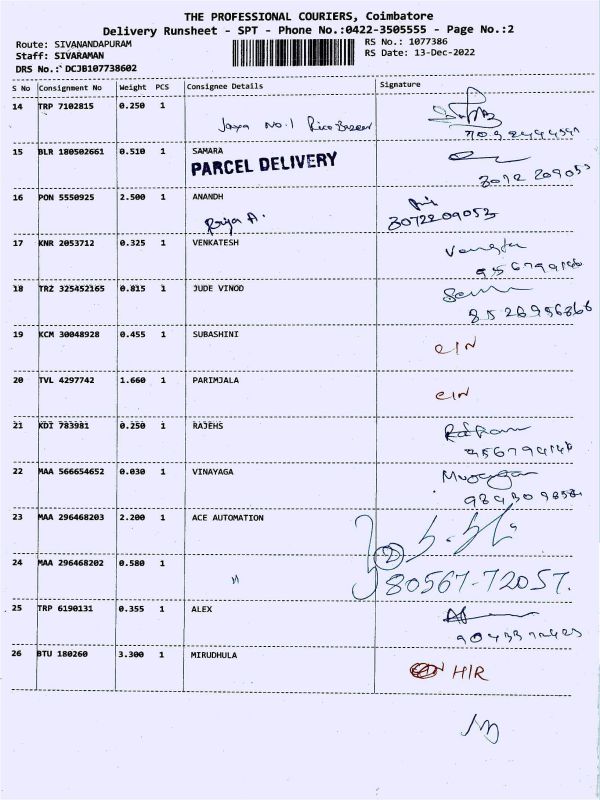 THE PROFESSIONAL COURIERS, Coimbatore
Delivery Runsheet - SPT - Phone No.:0422-3505555 - Page No.:2
Route: SIVANANDAPURAM RS No.: 1077386
Staff: SIVARAMAN RS Date: 13-Dec-2022
DRS No.: DCJB107738602
S No Consignment No Weight PCS Consignee Details Signature
14 TRP 7102815 0.250 1
No.1
15 BLR 180502661 0.510 1 SAMARA
PARCEL DELIVERY
16 PON 5550925 2.500 1 ANANDH
Priya A. 3072209053
17 KNR 2053712 0.325 1 VENKATESH
18 TRZ 325452165 0.815 1 JUDE VINOD
19 KCM 30048928 0.455 1 SUBASHINI
CIN
20 TVL 4297742 1.660 1 PARIMJALA
CIN
21 KDI 783981 0.250 1 RAJEHS
22 MAA 566654652 0.030 1 VINAYAGA
23 MAA 296468203 2.200 1 ACE AUTOMATION
2
24 MAA 296468202 0.580 1
" 80567-72057.
25 TRP 6190131 0.355 1 ALEX
26 BTU 180260 3.300 1 MIRUDHULA
H/R